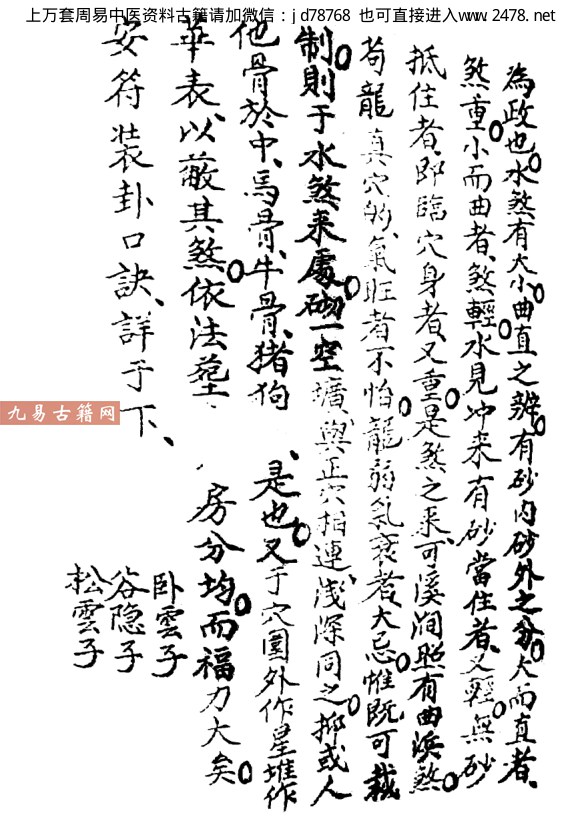 上万套周易中医资料古籍请加微信：jd78768 也可直接进入www.2478.net
為政也水煞有大小曲直之辨有砂内砂外之分大而直者、
煞重小而曲者、煞輕水見冲来有砂當住者、又輕無砂
抵住者、即臨穴身者又重是煞之来、可溪澗照有曲浜煞
苟龍真穴的、氣旺者不怕龍弱氣衰者大忌惟既可裁
制則于水煞来處砌一空壙、與正穴相連、浅深同之抑或人
他骨於中、馬骨、牛骨、猪狗、是也又于穴圍外作星堆作
華表、以蔽其煞依法 房分均而福力大矣
安符装卦口訣、詳于下、
卧雲子
谷隐子
松雲子
九易古籍网